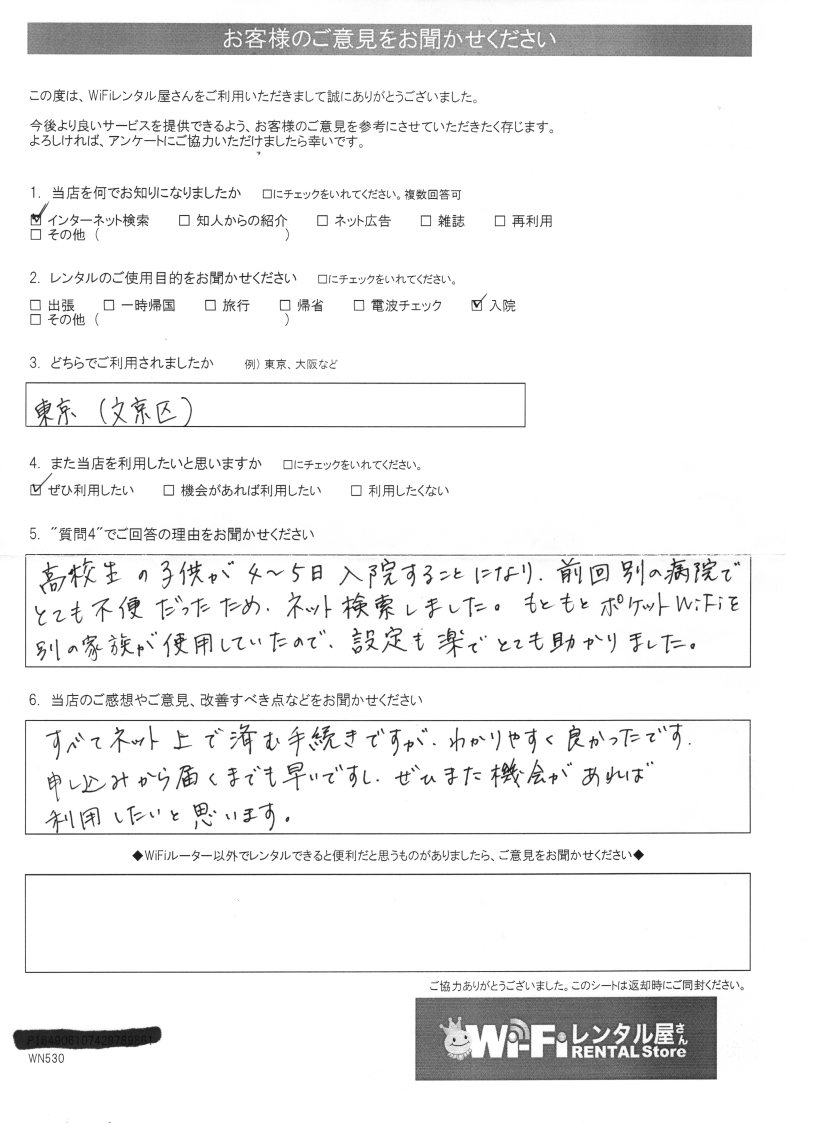 お客様のご意見をお聞かせください
この度は、WiFiレンタル屋さんをご利用いただきまして誠にありがとうございました。
今後より良いサービスを提供できるよう、お客様のご意見を参考にさせていただきたく存じます。
よろしければ、アンケートにご協力いただけましたら幸いです。
1. 当店を何でお知りになりましたか □にチェックをいれてください。複数回答可
☑ インターネット検索 □ 知人からの紹介 □ ネット広告 □ 雑誌 □ 再利用
□ その他 ( )
2. レンタルのご使用目的をお聞かせください □にチェックをいれてください。
□ 出張 □ 一時帰国 □ 旅行 □ 帰省 □ 電波チェック ☑ 入院
□ その他 ( )
3. どちらでご利用されましたか 例) 東京、大阪など
東京 (文京区)
4. また当店を利用したいと思いますか □にチェックをいれてください。
☑ ぜひ利用したい □ 機会があれば利用したい □ 利用したくない
5. "質問4"でご回答の理由をお聞かせください
高校生の子供が4〜5日入院することになり、前回別の病院で
とても不便だったため、ネット検索しました。もともとポケットWiFiを
別の家族が使用していたので、設定も楽でとても助かりました。
6. 当店のご感想やご意見、改善すべき点などをお聞かせください
すべてネット上で済む手続きですが、わかりやすく良かったです。
申し込みから届くまでも早いですし、ぜひまた機会があれば
利用したいと思います。
◆WiFiルーター以外でレンタルできると便利だと思うものがありましたら、ご意見をお聞かせください◆
ご協力ありがとうございました。このシートは返却時にご同封ください。
WN530
Wi-Fiレンタル屋さん
RENTAL Store